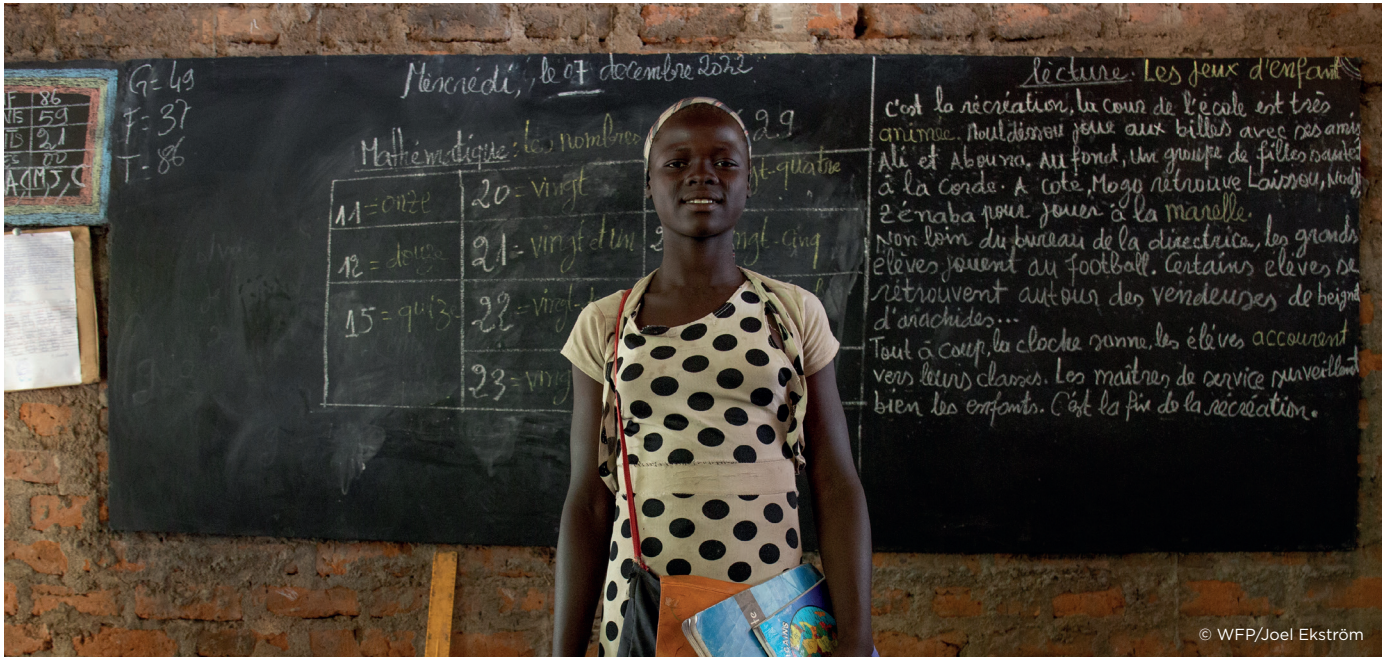 86
59
21
G = 49
F = 37
T = 86
Mercredi, le 07 decembre 2022
Mathématique : les nombres 29
11 = onze
12 = douze
15 = quize
20 = vingt
21 = vingt et un
22 = vingt-
23 = ving
gt-quatre
ngt-cinq
lecture. Les jeux d'enfant
C'est la récréation, la cour de l'école est très
animée. joue aux billes avec ses amis
Ali et Abouna. Au fond, un groupe de filles
à la corde. A coté, Mogo retrouve Laissou,
Zénaba pour jouer à la marelle.
Non loin du bureau de la directrice, les grands
élèves jouent au football. Certains elèves se
retrouvent autour des vendeuses de beign
d'arachides...
Tout à coup, la cloche sonne, les élèves accourent
vers leurs classes. Les maîtres de service surveillent
bien les enfants. C'est la fin de la récréation.
© WFP/Joel Ekström